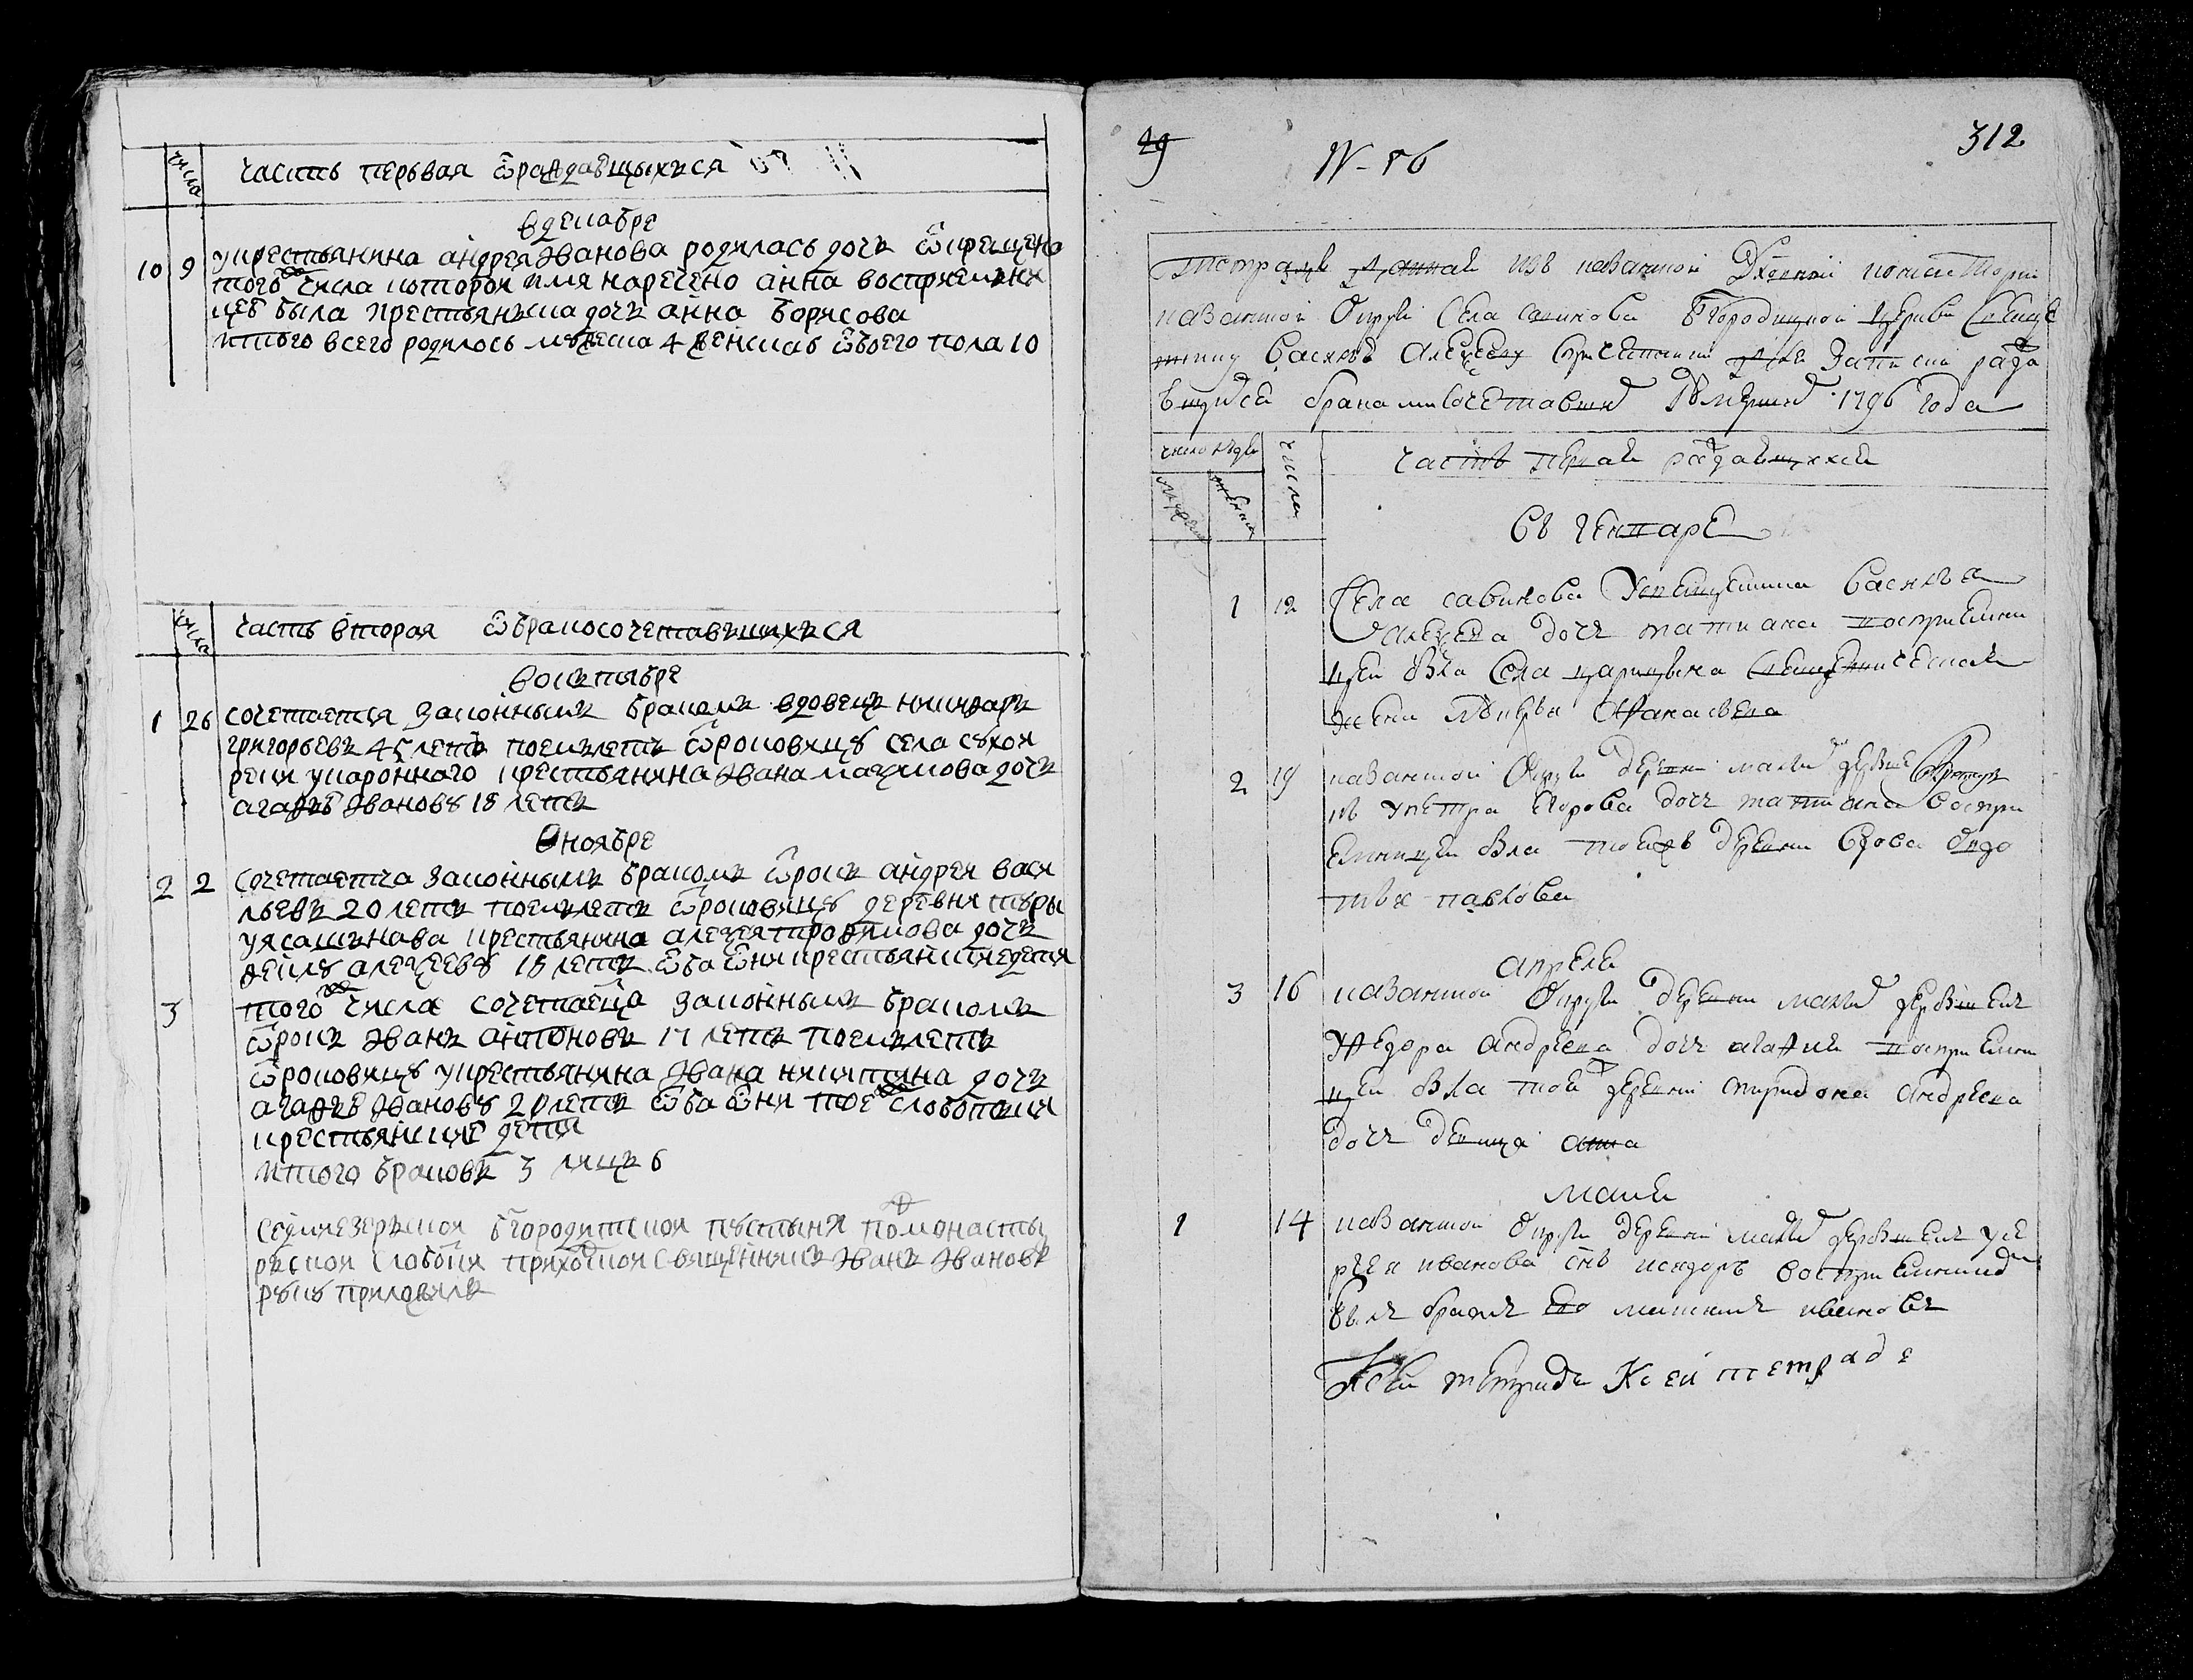 числа
часть первая ѿраждаѣщыхъся
вдекабре
10 9 укрестьянина андрея Иванова родилась дочь ѿкрещена
того числа которои имя наречено анна восприемни
цеѣ была крестьянъска дочь анна борисова
итого всего родилось мужеска 4 женска 6 обоего пола 10
числа
часть вторая ѿбракосочетавъшихъся
воктябре
1 26 сочетается законнымъ бракомъ вдовецъ никифаръ
григорьевъ 45 летъ поемлетъ ѿроковицу села сухои
реки укаронного крестьянина Ивана маѯимова дочь
агафью Иванову 18 летъ
Вноябре
2 2 сочетается законнымъ бракомъ ѿрокъ андреи васи
льевъ 20 летъ поемлетъ ѿроковицу деревни туры
уясашънава крестьянина алеѯея трофимова дочь
феклу алеѯееву 18 летъ ѿба ѿни крестьянские дети
3 того числа сочетаеца законнымъ бракомъ
ѿрокъ Иванъ антоновъ 17 летъ поемлетъ
ѿроковицу укрестьянина Ивана никитина дочь
агафью Иванову 20 летъ ѿба ѿни тое слободки
крестьянские дети
итого браковъ 3 лицъ 6
Седмиезерънои бгородитскои пустыни подмонасты
рьскои слободки приходскои священникъ Иванъ Ивановъ
руку приложилъ
49 N 56 312
Тетрадь данная изъ казанской Дховной консистории
казанской округи Села савинова Бгородицкой церкви Свяще
ннику Василью Алеѯееву спричетники для записки ражда
вшихся бракомъ сочетавших умерших 1796 года
число людей
мужеска женска числа
часть первая раждавшихся
Въ Генваре
1 12 Села савинова Усвященника Василья
Алеѯеева дочь татиана восприемни
цеи была Села царицына священническая
жена Афанасьева
2 19 казанской округи деревни малых дербышекъ
Упетра Егорова дочь татиана воспри
емницеи была тоежъ деревни вдова Овдо
тья павлова
апреля
3 16 казанской округи деревни малых дербышекъ
Уфедора андреева дочь агафия восприемни
цеи была тои деревни спиридона андреева
дочь девица анна
маия
1 14 казанской округи деревни малых дербышекъ усе
ргея иванова снъ исидоръ восприемникомъ
былъ братъ ево иванов
К сей тетраде